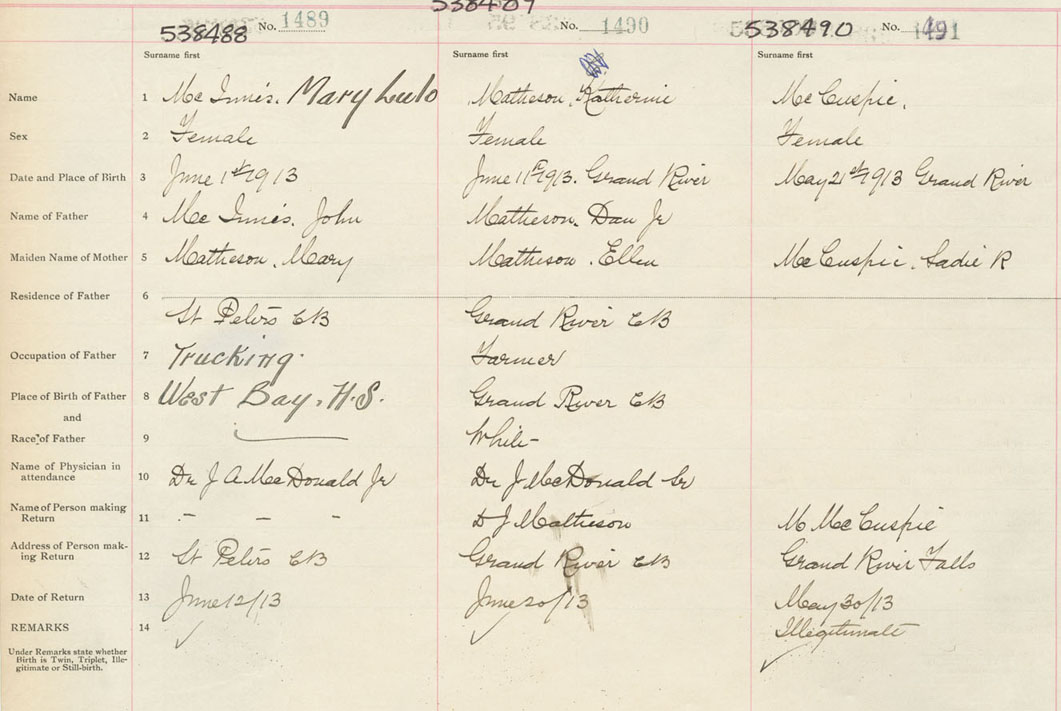 538488 No. 1489
No. 1490
538490 No. 1491
Surname first Surname first Surname first
Name 1 Mc Innis. Mary Lulo Matheson, Katherine Mc Cuspie.
Sex 2 Female Female Female
Date and Place of Birth 3 June 1st 1913 June 11th 1913. Grand River May 21st 1913 Grand River
Name of Father 4 Mc Innis. John Matheson. Dan Jr
Maiden Name of Mother 5 Matheson. Mary Matheson. Ellen Mc Cuspie. Sadie R
Residence of Father 6
St Peters CB Grand River CB
Occupation of Father 7 Trucking. Farmer
Place of Birth of Father 8 West Bay, Grand River CB
and
Race of Father 9 White
Name of Physician in
attendance 10 Dr J A McDonald Jr Dr J McDonald Sr
Name of Person making
Return 11 – – – D J Matheson M McCuspie
Address of Person mak-
ing Return 12 St Peters CB Grand River CB Grand River Falls
Date of Return 13 June 12/13 June 20/13 May 30/13
REMARKS 14 ✓ ✓ Illegitimate
Under Remarks state whether
Birth is Twin, Triplet, Ille-
gitimate or Still-birth.